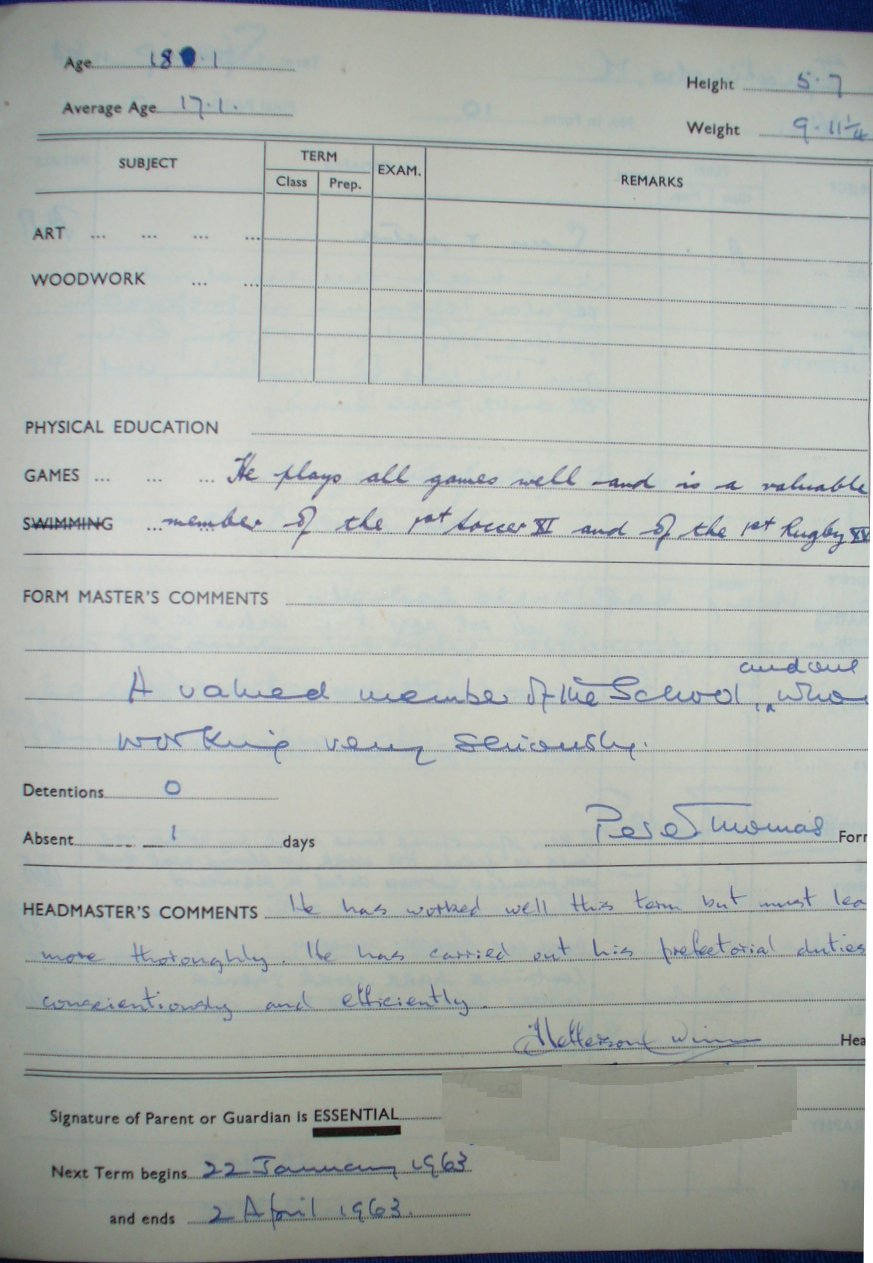 Age 18 . 1
Height 5.7
Average Age 17.1.
Weight 9.11¼
SUBJECT TERM EXAM. REMARKS
Class Prep.
ART ... ... ... ...
WOODWORK ... ...
PHYSICAL EDUCATION
GAMES ... ... ... He plays all games well and is a valuable
SWIMMING ... member of the 1st Soccer XI and of the 1st Rugby XV
FORM MASTER'S COMMENTS
and one
A valued member of the School, who
working very seriously.
Detentions 0
Absent 1 days
Peter Thomas Form
HEADMASTER'S COMMENTS He has worked well this term but must lea
more thoroughly. He has carried out his prefectorial duties
conscientiously and efficiently.
Hea
Signature of Parent or Guardian is ESSENTIAL
Next Term begins 22 January 1963
and ends 2 April 1963.